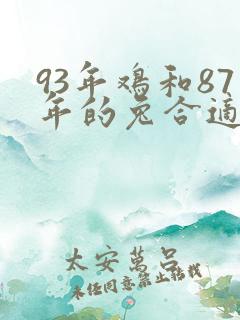 93年鸡和87
年的兔合适
太安萬呂
未经同意禁止转载